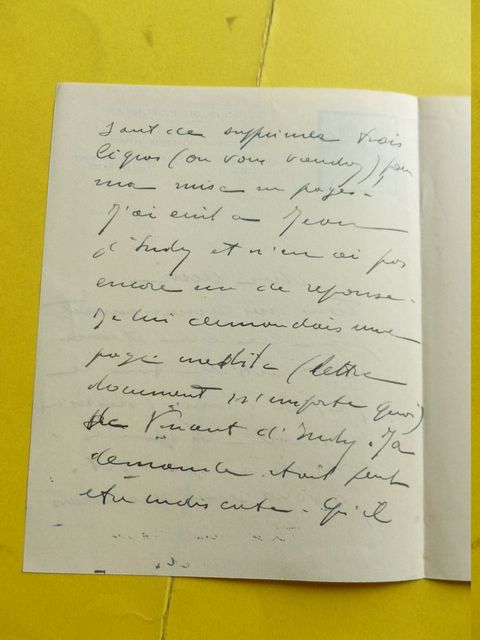 sant de supprimer trois
lignes (ou vous voudrez) pour
ma mise en pages.
J'ai écrit à Jean
d'Indy et n'en ai pas
encore eu de réponse.
Je lui demandais une
page inédite (lettre
document n'importe quoi)
de Vincent d'Indy. Ma
demande était peut
être indiscrète. Qu'il